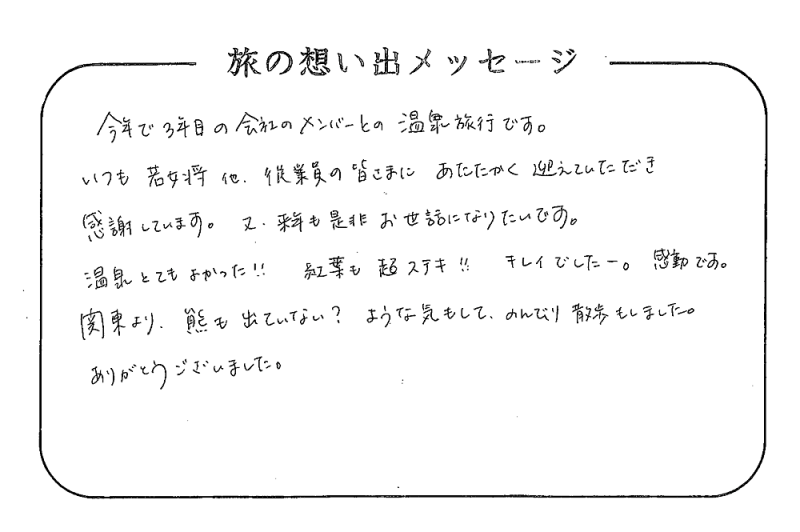 旅の想い出メッセージ
今年で3年目の会社のメンバーとの 温泉旅行です。
いつも 若女将 他、従業員の皆さまに あたたかく 迎えていただき
感謝しています。 又、来年も是非 お世話になりたいです。
温泉とてもよかった!! 紅葉も 超ステキ!! キレイでしたー。 感動です。
関東より、熊も 出ていない? ような気もして、のんびり 散歩もしました。
ありがとうございました。